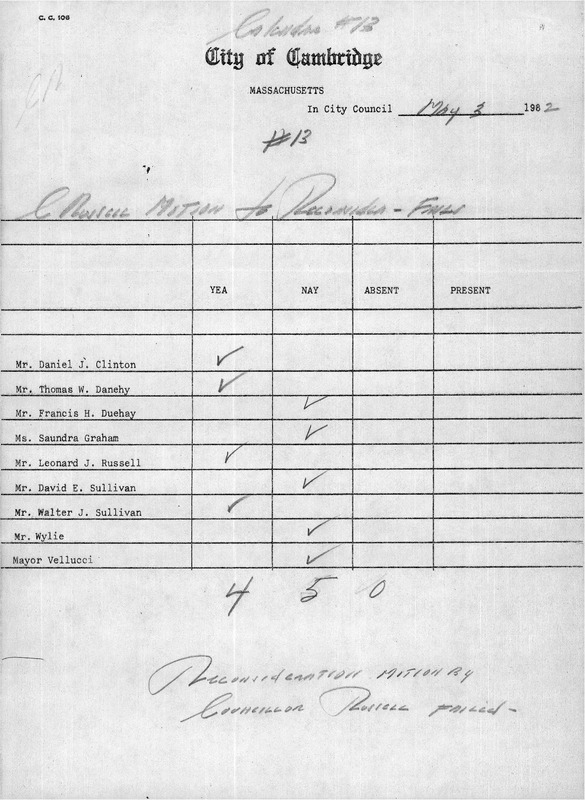 C. C. 106
Calendar #13
City of Cambridge
MASSACHUSETTS
In City Council May 3 1982
#13
C Russell Motion to Reconsider - Fails
YEA NAY ABSENT PRESENT
Mr. Daniel J. Clinton ✓
Mr. Thomas W. Danehy ✓
Mr. Francis H. Duehay ✓
Ms. Saundra Graham ✓
Mr. Leonard J. Russell ✓
Mr. David E. Sullivan ✓
Mr. Walter J. Sullivan ✓
Mr. Wylie ✓
Mayor Vellucci ✓
4 5 0
Reconsideration Motion by
Councillor Russell failed -